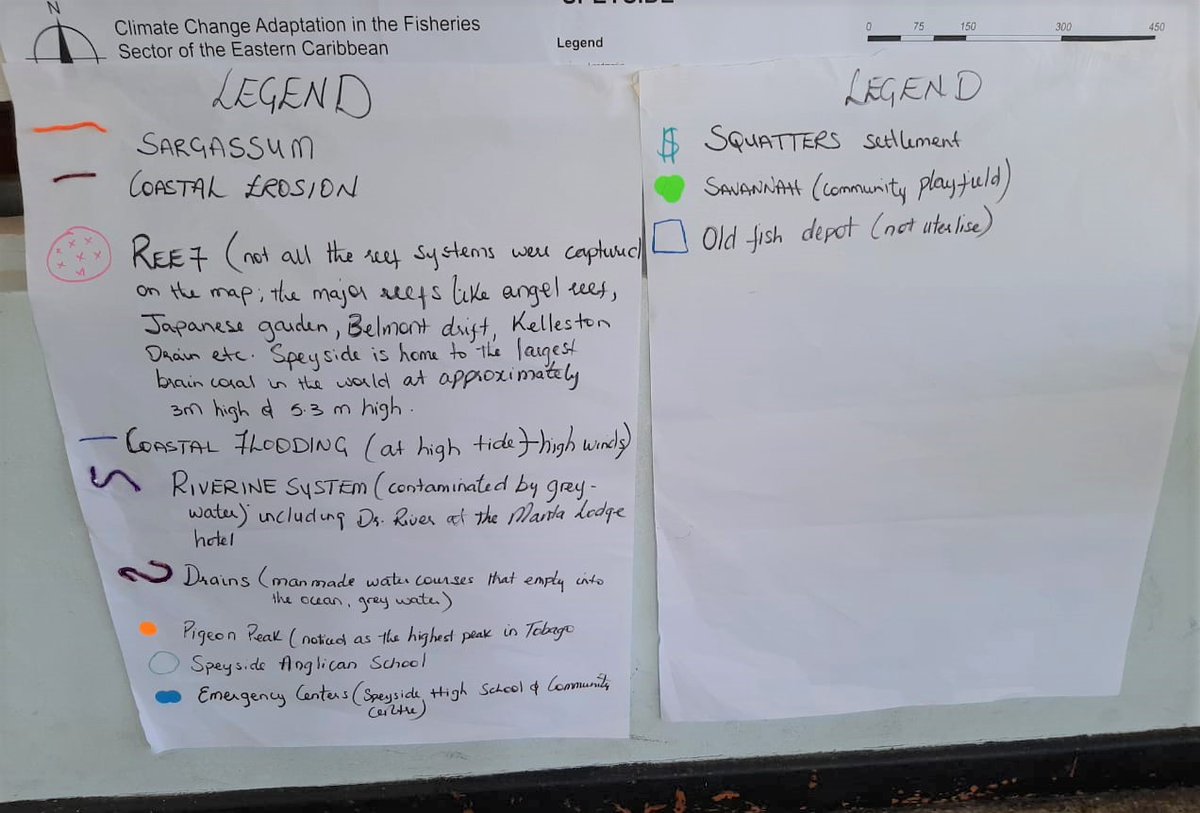 SPEYSIDE
N
Climate Change Adaptation in the Fisheries
Sector of the Eastern Caribbean
Legend
0 75 150 300 450
LEGEND
SARGASSUM
COASTAL EROSION
REEF (not all the reef systems were captured
on the map; the major reefs like angel reef,
Japanese garden, Belmont drift, Kelleston
Drain etc. Speyside is home to the largest
brain coral in the world at approximately
3m high & 5.3 m high.
COASTAL FLOODING (at high tide + high winds)
RIVERINE SYSTEM (contaminated by grey-
water) including Dr. River at the Manta Lodge
hotel
Drains (manmade water courses that empty into
the ocean, grey water)
Pigeon Peak (noticed as the highest peak in Tobago
Speyside Anglican School
Emergency Centers (Speyside High School & Community
Centre)
LEGEND
$ SQUATTERS settlement
SAVANNAH (community playfield)
Old fish depot (not uterlise)